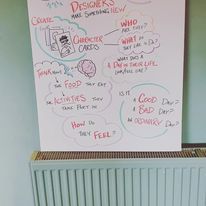 DESIGNERS
MAKE SOMETHING NEW
CREATE
CHARACTER
CARDS
WHO
ARE THEY?
WHAT DO
THEY LIKE TO DO?
WHAT DOES
A DAY IN THEIR LIFE
LOOK LIKE?
THINK ABOUT
THE FOOD THEY EAT
THE ACTIVITIES THEY
TAKE PART IN
HOW DO
THEY FEEL?
IS IT
A GOOD DAY?
A BAD DAY?
AN ORDINARY DAY?